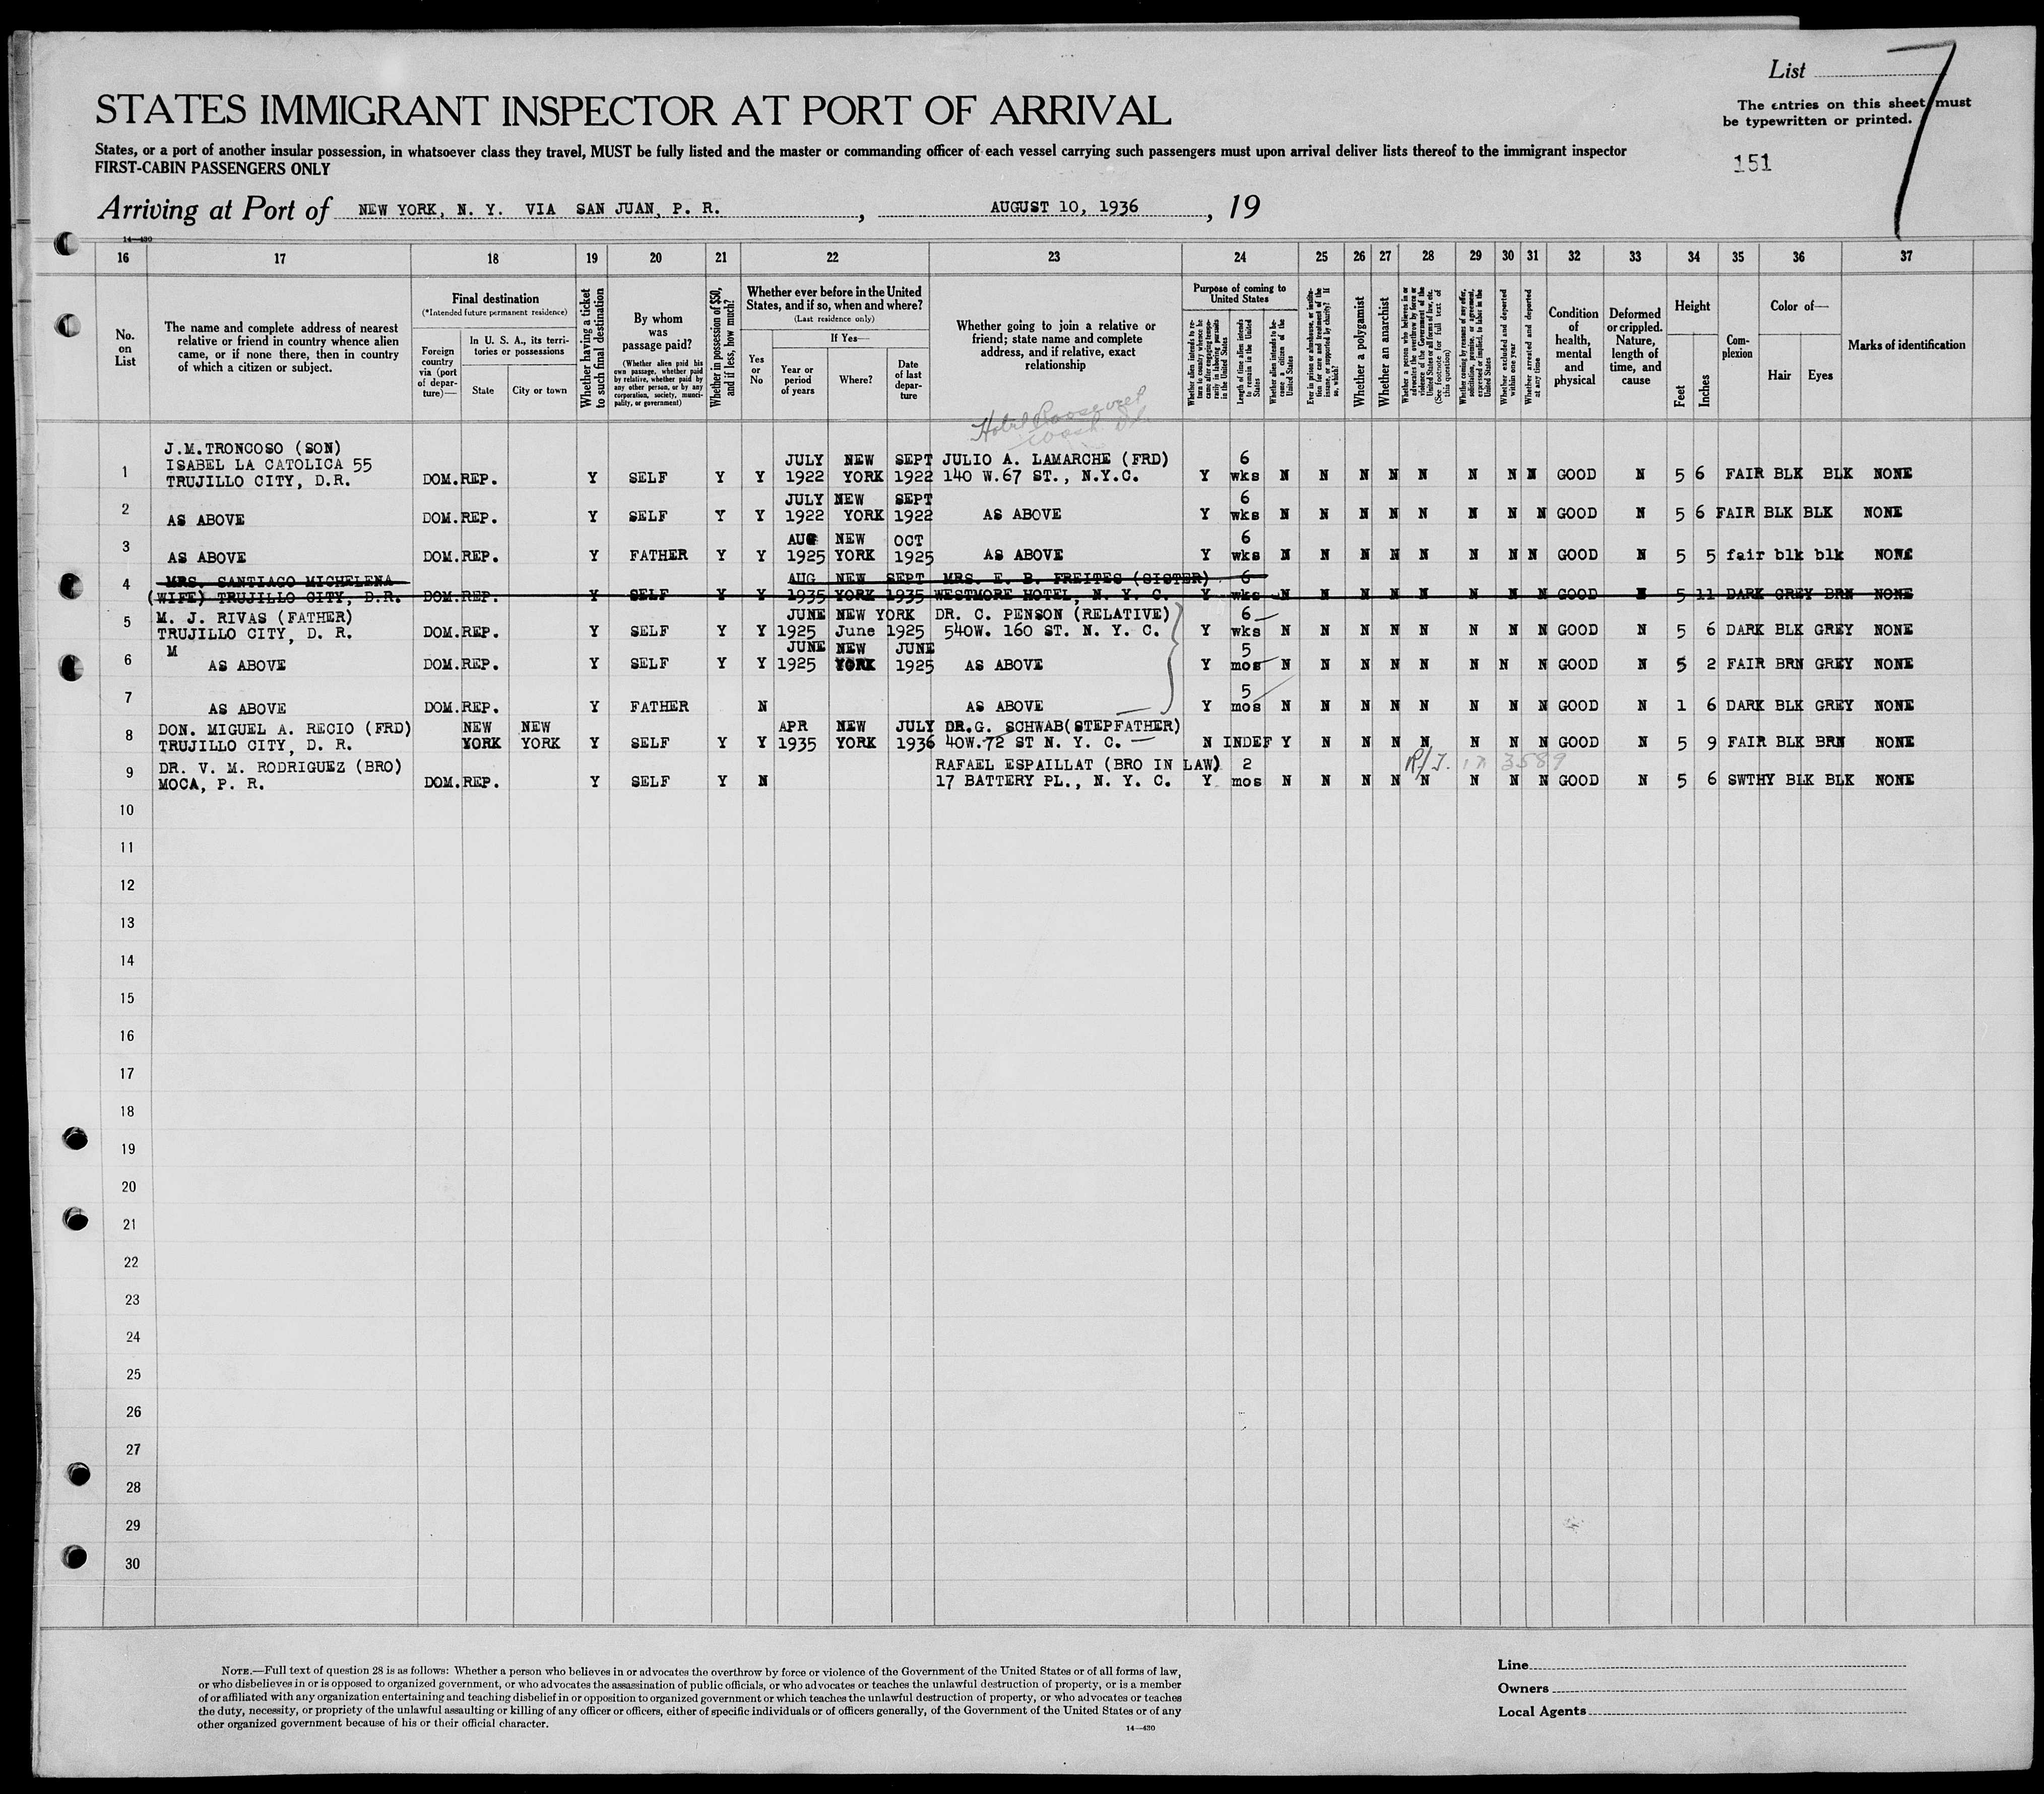 List 7
The entries on this sheet must
be typewritten or printed.
151
STATES IMMIGRANT INSPECTOR AT PORT OF ARRIVAL
States, or a port of another insular possession, in whatsoever class they travel, MUST be fully listed and the master or commanding officer of each vessel carrying such passengers must upon arrival deliver lists thereof to the immigrant inspector
FIRST-CABIN PASSENGERS ONLY
Arriving at Port of NEW YORK, N. Y. VIA SAN JUAN, P. R. , AUGUST 10, 1936 , 19
14—430
16 17 18 19 20 21 22 23 24 25 26 27 28 29 30 31 32 33 34 35 36 37
No. on List
The name and complete address of nearest relative or friend in country whence alien came, or if none there, then in country of which a citizen or subject.
Final destination
(*Intended future permanent residence)
Foreign country via (port of departure)—
In U. S. A., its territories or possessions
State City or town
Whether having a ticket to such final destination
By whom was passage paid?
(Whether alien paid his own passage, whether paid by relative, whether paid by any other person, or by any corporation, society, municipality, or government)
Whether in possession of $50, and if less, how much?
Whether ever before in the United States, and if so, when and where?
(Last residence only)
Yes or No
If Yes—
Year or period of years
Where?
Date of last departure
Whether going to join a relative or friend; state name and complete address, and if relative, exact relationship
Purpose of coming to United States
Whether alien intends to return to country whence he came after engaging temporarily in laboring pursuits in the United States
Length of time alien intends to remain in the United States
Whether alien intends to become a citizen of the United States
Ever in prison or almshouse, or institution for care and treatment of the insane, or supported by charity? If so, which?
Whether a polygamist
Whether an anarchist
Whether a person who believes in or advocates the overthrow by force or violence of the Government of the United States or all forms of law, etc. (See footnote for full text of this question)
Whether coming by reason of any offer, solicitation, promise, or agreement, expressed or implied, to labor in the United States
Whether excluded and deported within one year
Whether arrested and deported at any time
Condition of health, mental and physical
Deformed or crippled. Nature, length of time, and cause
Height
Feet Inches
Complexion
Color of—
Hair Eyes
Marks of identification
Hotel Roosevelt
J.M.TRONCOSO (SON)
ISABEL LA CATOLICA 55 JULY NEW SEPT JULIO A. LAMARCHE (FRD) 6
1 TRUJILLO CITY, D.R. DOM.REP. Y SELF Y Y 1922 YORK 1922 140 W.67 ST., N.Y.C. Y wks N N N N N N N N GOOD N 5 6 FAIR BLK BLK NONE
JULY NEW SEPT 6
2 AS ABOVE DOM.REP. Y SELF Y Y 1922 YORK 1922 AS ABOVE Y wks N N N N N N N N GOOD N 5 6 FAIR BLK BLK NONE
AUG NEW OCT 6
3 AS ABOVE DOM.REP. Y FATHER Y Y 1925 YORK 1925 AS ABOVE Y wks N N N N N N N N GOOD N 5 5 fair blk blk NONE
4 MRS. SANTIAGO MICHELENA AUG NEW SEPT MRS. E. B. FREITES (SISTER) 6
(WIFE) TRUJILLO CITY, D.R. DOM.REP. Y SELF Y Y 1935 YORK 1935 WESTMORE HOTEL, N. Y. C. Y wks N N N N N N N N GOOD N 5 11 DARK GREY BRN NONE
5 M. J. RIVAS (FATHER) JUNE NEW YORK DR. C. PENSON (RELATIVE) 6
TRUJILLO CITY, D. R. DOM.REP. Y SELF Y Y 1925 June 1925 540W. 160 ST. N. Y. C. Y wks N N N N N N N N GOOD N 5 6 DARK BLK GREY NONE
M JUNE NEW JUNE 5
6 AS ABOVE DOM.REP. Y SELF Y Y 1925 YORK 1925 AS ABOVE Y mos N N N N N N N N GOOD N 5 2 FAIR BRN GREY NONE
5
7 AS ABOVE DOM.REP. Y FATHER N AS ABOVE Y mos N N N N N N N N GOOD N 1 6 DARK BLK GREY NONE
8 DON. MIGUEL A. RECIO (FRD) NEW NEW APR NEW JULY DR.G. SCHWAB(STEPFATHER)
TRUJILLO CITY, D. R. YORK YORK Y SELF Y Y 1935 YORK 1936 40W.72 ST N. Y. C. N INDEF Y N N N N N N N GOOD N 5 9 FAIR BLK BRN NONE
9 DR. V. M. RODRIGUEZ (BRO) RAFAEL ESPAILLAT (BRO IN LAW) 2 R/T. in 3589
MOCA, P. R. DOM.REP. Y SELF Y N 17 BATTERY PL., N. Y. C. Y mos N N N N N N N N GOOD N 5 6 SWTHY BLK BLK NONE
10
11
12
13
14
15
16
17
18
19
20
21
22
23
24
25
26
27
28
29
30
NOTE.—Full text of question 28 is as follows: Whether a person who believes in or advocates the overthrow by force or violence of the Government of the United States or of all forms of law,
or who disbelieves in or is opposed to organized government, or who advocates the assassination of public officials, or who advocates or teaches the unlawful destruction of property, or is a member
of or affiliated with any organization entertaining and teaching disbelief in or opposition to organized government or which teaches the unlawful destruction of property, or who advocates or teaches
the duty, necessity, or propriety of the unlawful assaulting or killing of any officer or officers, either of specific individuals or of officers generally, of the Government of the United States or of any
other organized government because of his or their official character.
14—430
Line
Owners
Local Agents